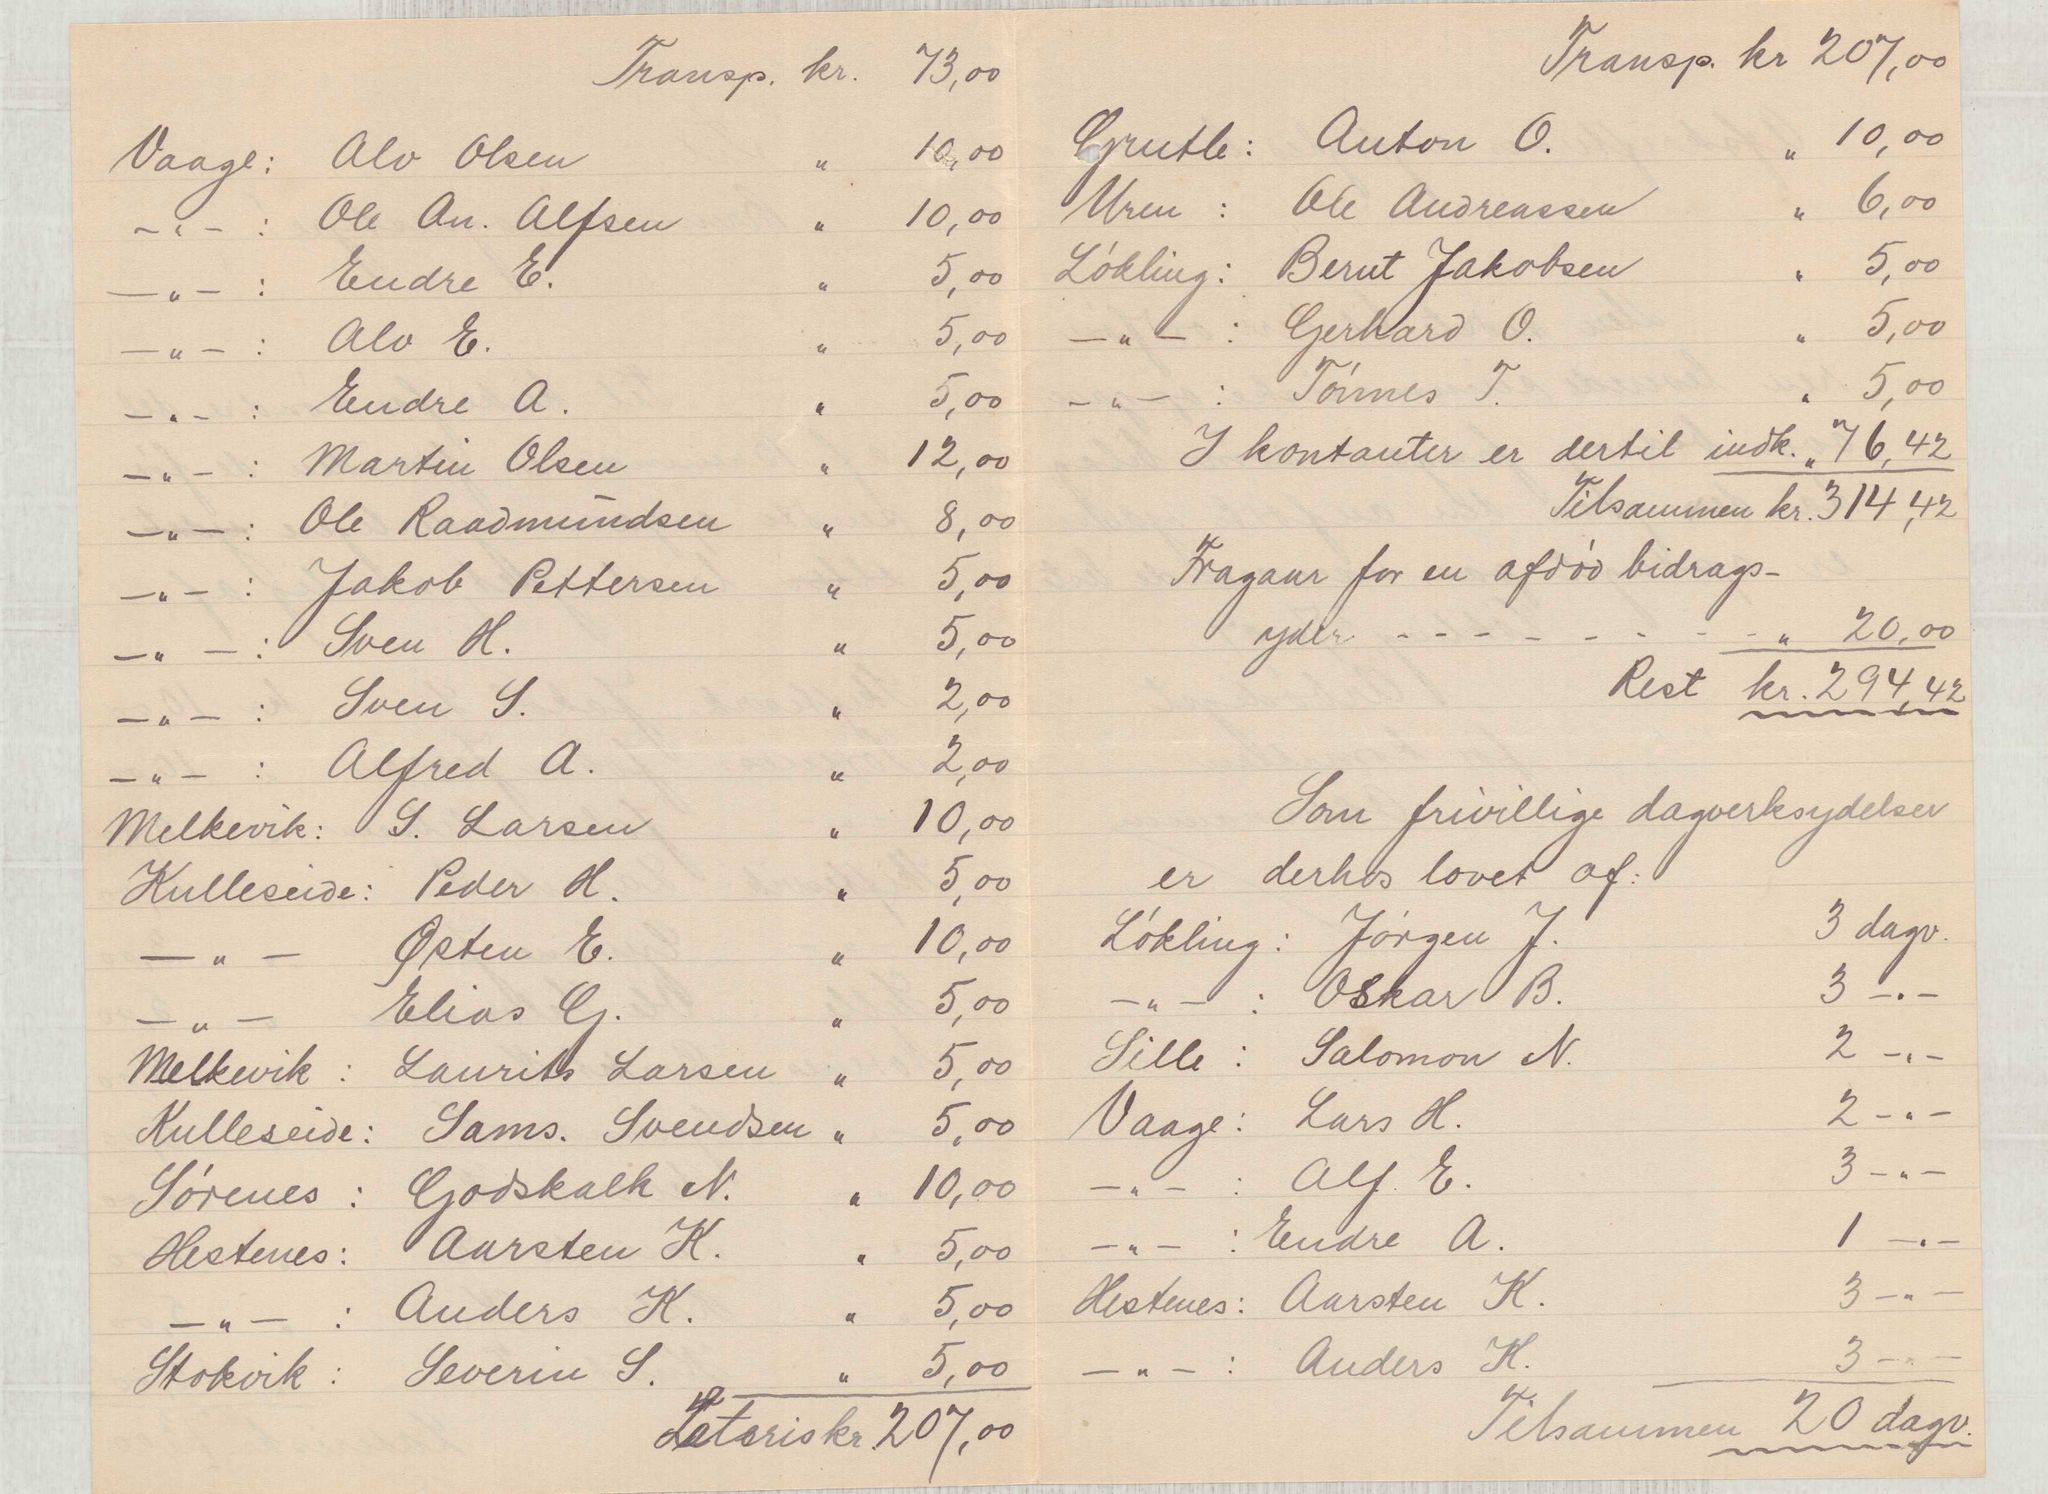 Transp. kr. 73,00
Vaage: Alv Olsen " 10,00
-"- : Ole An. Alfsen " 10,00
-"- : Endre E. " 5,00
-"- : Alv E. " 5,00
-"- : Endre A. " 5,00
-"- : Martin Olsen " 12,00
-"- : Ole Raadmundsen " 8,00
-"- : Jakob Pettersen " 5,00
-"- : Sven H. " 5,00
-"- : Sven S. " 2,00
-"- : Alfred A. " 2,00
Melkevik: S. Larsen " 10,00
Kulleseide: Peder H. " 5,00
-"- Østen E. " 10,00
-"- Elias G. " 5,00
Melkevik : Laurits Larsen " 5,00
Kulleseide: Sams. Svendsen " 5,00
Sørenes : Godskalk N. " 10,00
Hestenes: Aarsten K. " 5,00
-"- : Anders K. " 5,00
Stokvik : Severin S. " 5,00
Lateris kr. 207,00
Transp. kr 207,00
Grutle: Anton O. " 10,00
Uren : Ole Andreassen " 6,00
Løkling: Bernt Jakobsen " 5,00
-"- : Gerhard O. " 5,00
-"- : Tönnes T. " 5,00
I kontanter er dertil indk. " 76,42
Tilsammen kr. 314,42
Fragaar for en afdød bidrags-
yder - - - - - - - - - " 20,00
Rest kr. 294,42
Som frivillige dagverksydelser
er derhos lovet af:
Løkling: Jørgen J. 3 dagv.
-"- : Oskar B. 3 -"-
Sille : Salomon N. 2 -"-
Vaage: Lars H. 2 -"-
-"- : Alf E. 3 -"-
-"- : Endre A. 1 -"-
Hestenes: Aarsten K. 3 -"-
-"- : Anders K. 3 -"-
Tilsammen 20 dagv.